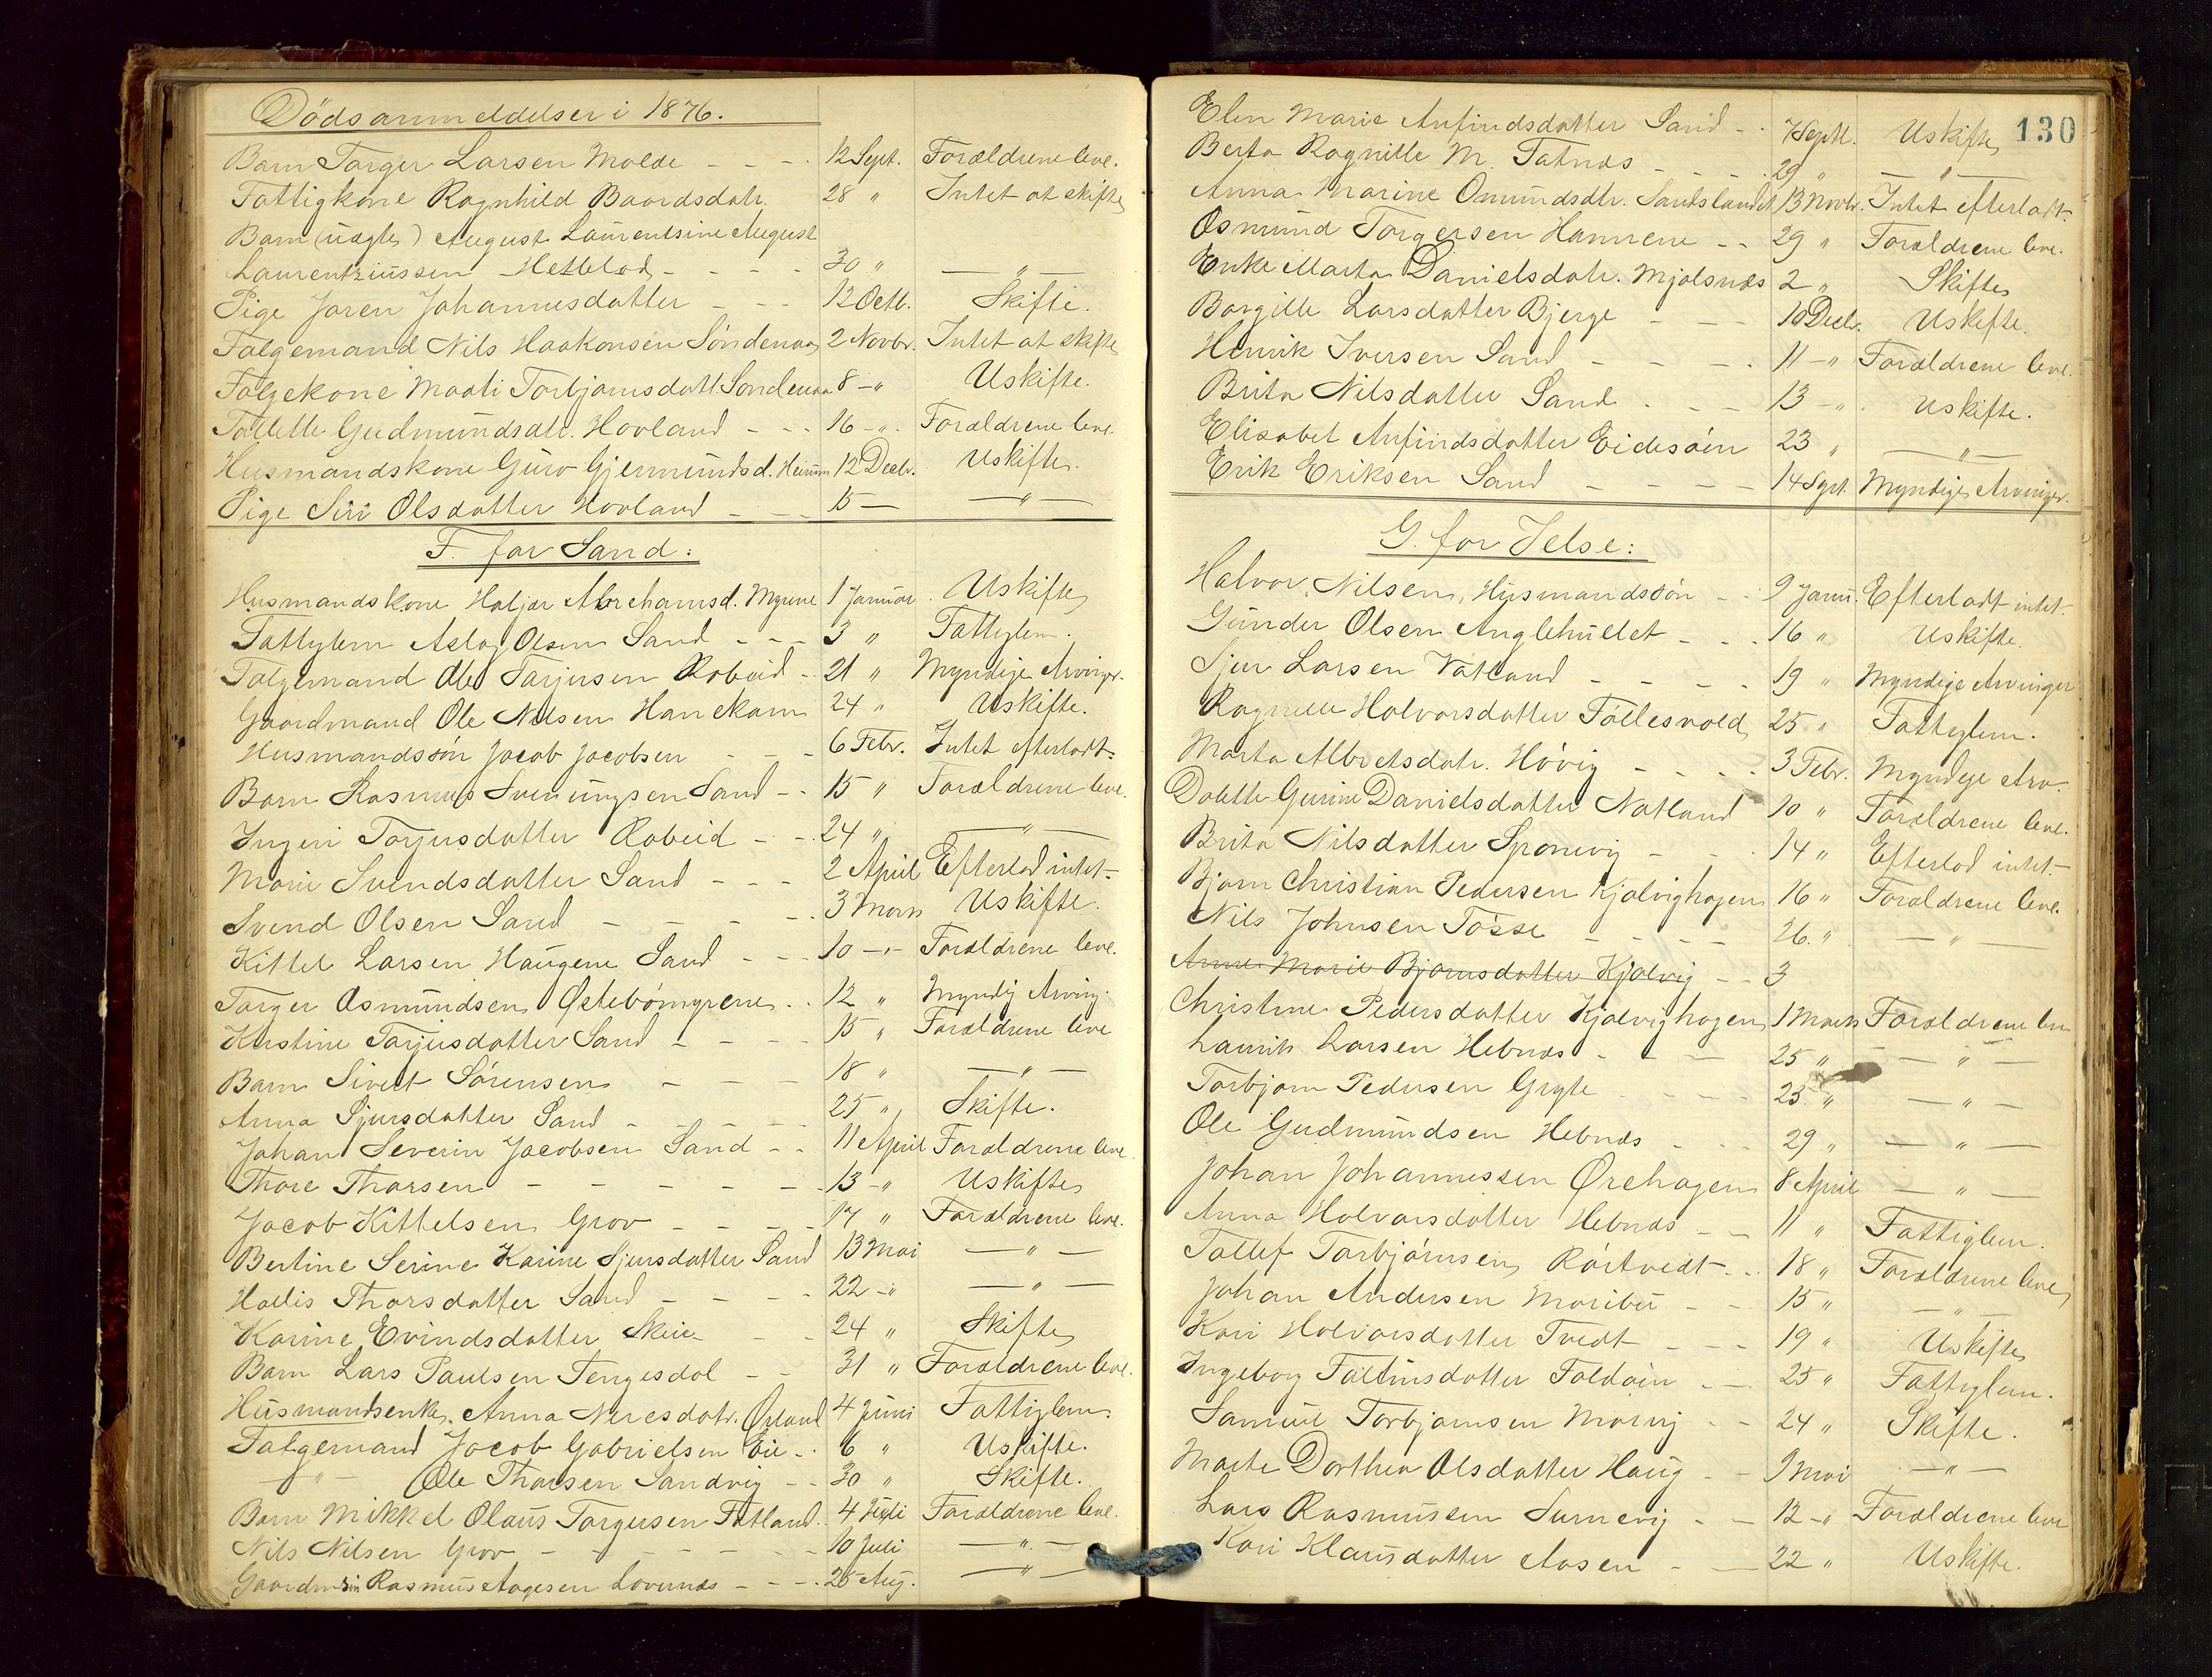 Dödsanmeldelser i 1876.
Barn Torger Larsen Molde - - - 12 Sept. Forældrene leve.
Fattigkone Ragnhild Baardsdatr. 28 " Intet at skifte
Barn (uægte) August Laurentsine August
Laurentziussen Hetlelød - - - 30 " — " —
Pige Joren Johannesdatter - - - 12 Octb. Skifte.
Folgemand Nils Haakonsen Söndenaa 2 Novbr. Intet at skifte
Folgekone Marti Torbjørnsdatt. Sondenaa 8 - " Uskifte.
Tollette Gudmundsdtr. Hovland - - - 16 - " - Forældrene leve.
Husmandskone Guro Gjermundsd. Heium 12 Decb. Uskifte.
Pige Siri Olsdatter Hovland - - - 15 — — " —
F. for Sand:
Husmandskone Haljer Abrahamsd. Myrene 1 Januar Uskifte
Fattylem Aslag Olsen Sand - - - 3 " Fattylem.
Folgemand Ole Tarjersen Robeid - - 21 " Myndige Arvinger.
Gaardmand Ole Nilsen Hanekam 24 " Uskifte.
Husmandssön Jacob Jacobsen - - - 6 Febr. Intet efterladt.
Barn Rasmus Sveinungsen Sand - - 15 " Forældrene leve.
Ingeri Torjersdatter Robeid - - 24 " — " —
Marie Svendsdatter Sand - - - 2 April Efterlod intet -
Svend Olsen Sand - - - - 3 Marts Uskifte.
Kittel Larsen Haugene Sand - - - 10 - " - Forældrene leve.
Torger Osmundsen Østebömyrene - - 12 " Myndig Arving.
Kirstine Tarjersdatter Sand - - - - 15 " Forældrene leve
Barn Sivert Sörensen - - - 18 " — " —
Anna Sjursdatter Sand - - - - 25 " Skifte.
Johan Severin Jacobsen Sand - - 11 April Forældrene leve
Thore Thorsen - - - - - - 13 - " Uskifte
Jacob Kittelsen Grov - - - - 17 " Forældrene leve.
Bertine Serine Karine Sjursdatter Sand 13 Mai — " —
Hollis Thorsdatter Sand - - - - 22 - " — " —
Karine Evindsdatter Skeie - - 24 " Skifte
Barn Lars Paulsen Tengesdal - - 31 " Forældrene leve.
Husmandsenke Anna Neresdatr. Ørland 4 Juni Fattiglem.
Folgemand Jacob Gabrielsen Eie - - 6 " Uskifte.
— " — Ole Thorsen Sandvig - - 30 " Skifte.
Barn Mikkel Olaus Torgersen Fatland. 4 Juli Forældrene leve.
Nils Nilsen Grov - - - - - - 10 Juli — " —
Gaardmsön Rasmus Aagesen Lovernæs - - - 25 Aug. — " —
130
Elen Marie Anfindsdatter Sand - - 7 Septb. Uskifte
Berta Ragnille M. Fatnæs - - - - 29 " — " —
Anna Marine Omundsdtr. Sandslandet 13 Novbr. Intet efterladt
Osmund Torgersen Hamrene - - 29 " Forældrene leve.
Enke Marta Danielsdatr. Mjølsnæs 2 " Skifte
Borgille Larsdatter Bjerge - - - 10 Decb. Uskifte.
Henrik Iversen Sand - - - - 11 - " Forældrene leve.
Brita Nilsdatter Sand - - - 13 - " . Uskifte.
Elisabet Anfindsdatter Eidesöen 23 " — " —
Erik Eriksen Sand - - - - 14 Sept. Myndige Arvinger.
G. for Jelse:
Halvor Nilsen, Husmandssön - - 9 Janu. Efterladt intet
Gunder Olsen Anglehullet - - - 16 " Uskifte.
Sjur Larsen Vatland - - - - 19 " Myndige Arvinger
Ragnille Halvorsdatter Föllesvold 25 " Fattylem.
Marta Albretsdatr. Hövig - - - - 3 Febr. Myndige Arv.
Dolette Gurine Danielsdatter Natland 10 " Forældrene leve.
Brita Nilsdatter Sponevig - - - 14 " Efterlod intet. -
Bjørn Christian Pedersen Kjølvighagen 16 " Forældrene leve.
Nils Johnsen Tösse - - - - 26. " — " —
Anne Marie Bjørnsdatter Kjølvig - - 3
Christine Pedersdatter Kjølvighagen 1 Marts Forældrene leve
Laurits Larsen Hebnæs - - - 25 " — " —
Torbjørn Pedersen Gryte - - - - 25 " — " —
Ole Gudmundsen Hebnæs - - 29 " — " —
Johan Johannessen Ørehagen 8 April — " —
Anna Holvorsdatter Hebnæs - - 11 " Fattiglem.
Tollef Torbjörnsen Rörtvedt - - 18 " Forældrene leve
Johan Andersen Maribu - - 15 " — " —
Kari Holvorsdatter Tvedt - - - 19 " Uskifte
Ingeborg Föltinsdatter Foldöen - - 25 " Fattyglem.
Samuel Torbjørnsen - - 24 " Skifte.
Marte Dorthea Olsdatter Haug - - 9 Mai — " —
Lars Rasmussen Surnevig - - 12 - " Forældrene leve
Kari Klausdatter Aasen - — 22 " Uskifte.